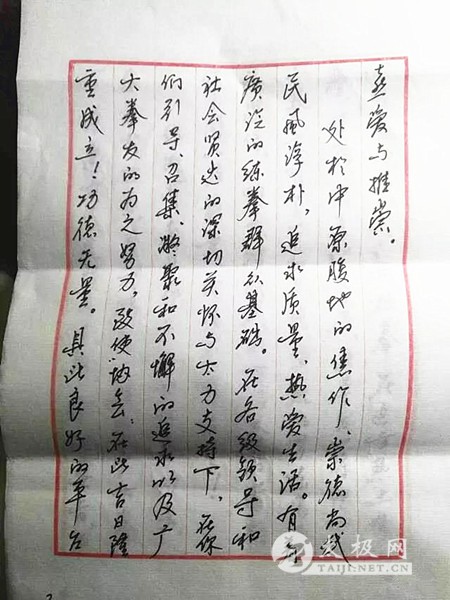 熹爱与推崇。
处于中原腹地的焦作、崇德尚武
民风淳朴，追求质量、热爱生活。有着
广泛的练拳群众基础。在各级领导和
社会贤达的深切关怀与大力支持下，在你
们引导、召集、凝聚和不懈的追求以及广
大拳友的为之努力，致使"协会"在此吉日隆
重成立！功德无量。具此良好的平台
太极网
TAIJI.NET.CN